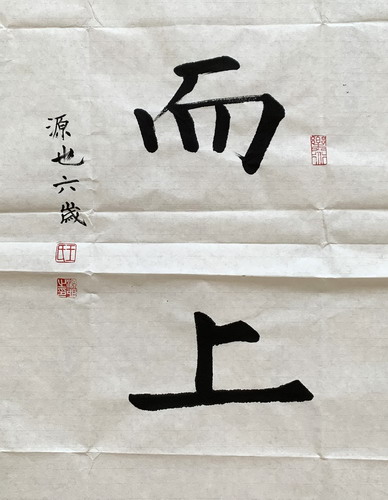 而上
源也六歲